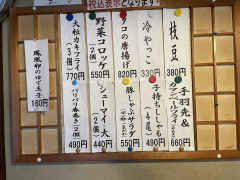 税込表示となります。
枝豆
380円
冷やっこ
330円
タコの唐揚げ
820円
野菜コロッケ
(2個)
550円
大粒カキフライ
(3個)
770円
手羽先&
660円
子持ちししゃも
(4尾)
490円
豚しゃぶサラダ
550円
シューマイ(大)
(2個)
440円
パリパリ春巻き(2個)
490円
鳳凰卵のゆで玉子
160円